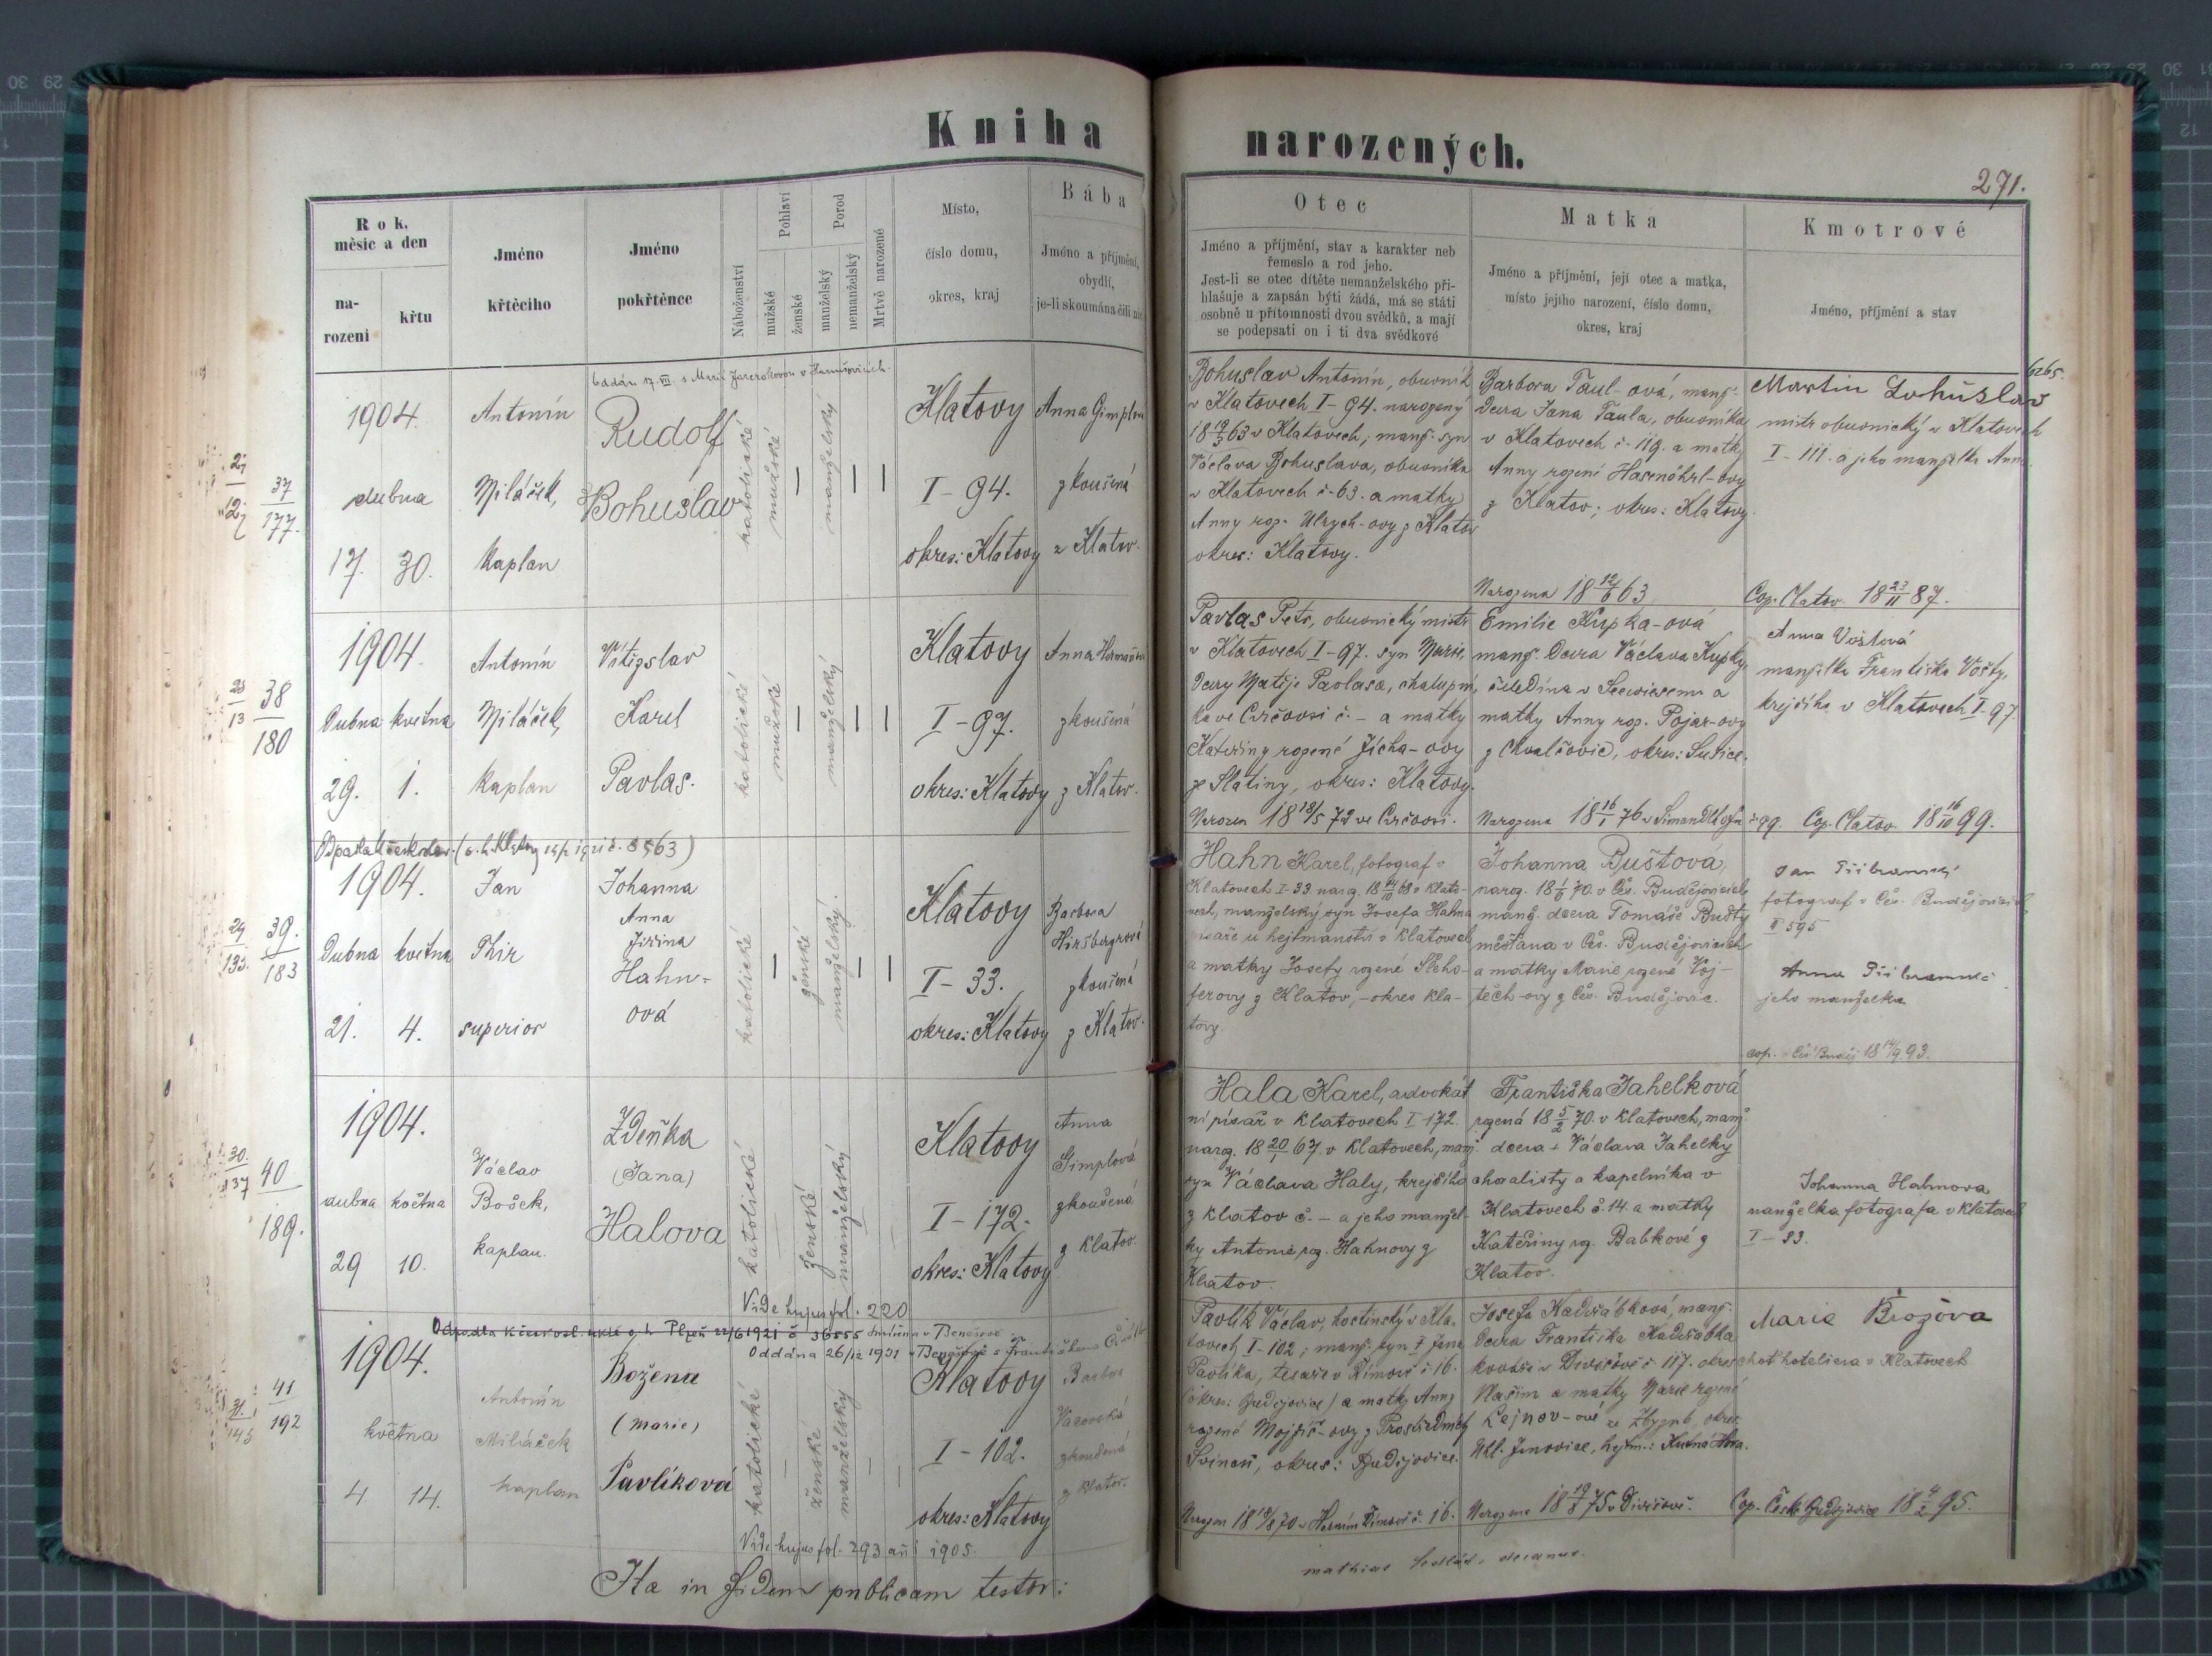 Kniha narozených.
271.
Rok, měsíc a den
narození
křtu
Jméno křtěcího
Jméno pokřtěnce
Náboženství
Pohlaví
mužské
ženské
Porod
manželský
nemanželský
Mrtvě narozené
Místo,
číslo domu,
okres, kraj
Bába
Jméno a příjmění,
obydlí,
je-li skoumána čili nic
Otec
Jméno a příjmění, stav a karakter neb
řemeslo a rod jeho.
Jest-li se otec dítěte nemanželského při-
hlašuje a zapsán býti žádá, má se státi
osobně u přítomnosti dvou svědků, a mají
se podepsati on i ti dva svědkové
Matka
Jméno a příjmění, její otec a matka,
místo jejího narození, číslo domu,
okres, kraj
Kmotrové
Jméno, příjmění a stav
37
177.
1904.
dubna
17. 30.
Antonín
Miláček,
kaplan
Rudolf
Bohuslav
katolické
mužské
manželský
Klatovy
I-94.
okres: Klatovy
Anna Gimplová
zkoušená
z Klatov.
Bohuslav Antonín, obuvník
v Klatovech I-94. narozený
18 19/3 63 v Klatovech; manž. syn
Václava Bohuslava, obuvníka
v Klatovech č. 63. a matky
Anny roz. Ulrych-ovy z Klatov
okres: Klatovy.
Barbora Taul-ová, manž.
dcera Jana Taula, obuvníka
v Klatovech č. 119. a matky
Anny rozené Hasenöhrl-ovy
z Klatov; okres: Klatovy.
Narozena 18 12/6 63
Martin Bohuslav
mistr obuvnický v Klatovech
I-111. a jeho manželka Anna
Cop. Klatov. 18 23/11 87.
38
180
1904.
Dubna května
29. 1.
Antonín
Miláček,
kaplan
Vítězslav
Karel
Pavlas.
katolické
mužské
manželský
Klatovy
I-97.
okres: Klatovy
zkoušená
z Klatov.
Pavlas Petr, obuvnický mistr
v Klatovech I-97. syn Marie,
dcery Matěje Pavlasa, chalupní-
ka ve Cvrčovsi č. - a matky
Kateřiny rozené Jícha-ovy
ze Slatiny, okres: Klatovy.
Narozen 18 18/5 72 ve Cvrčovsi.
Emilie Kupka-ová
manž. dcera Václava Kupky,
čeledína v Seewiesenu a
matky Anny roz. Pojar-ovy
z Chvalšovic, okres: Sušice.
Narozena 18 16/1 76
Anna Voštová
manželka Františka Vošty,
krejčího v Klatovech I-97
Cop. Klatov. 18 16/10 99.
39.
183
1904.
Dubna května
21. 4.
Jan
Thir
superior
Johanna
Anna
Jiřina
Hahn-
ová
katolické
ženské
manželský.
Klatovy
I-33.
okres: Klatovy
Barbora
Hiršbergrová
zkoušená
z Klatov.
Hahn Karel, fotograf v
Klatovech I-33. naroz. 18 14/10 68 v Klato-
vech, manželský syn Josefa Hahna
písaře u hejtmanství v Klatovech
a matky Josefy rozené Šleho-
ferovy z Klatov, - okres Kla-
tovy.
Johanna Buštová,
naroz. 18 1/6 70. v Čes. Budějovicích
manž. dcera Tomáše Bušty
měšťana v Čes. Budějovicích
a matky Marie rozené Voj-
těch-ovy z Čes. Budějovic.
Jan Příbramský
fotograf v Čes. Budějovicích
II 595
Anna Příbramská
jeho manželka
cop. v Čes. Buděj. 18 14/9 93.
40
189.
1904.
dubna května
29 10.
Václav
Bošek,
kaplan.
Zdeňka
(Jana)
Halova
katolické
ženské
manželský
Klatovy
I-172.
okres: Klatovy
Anna
Gimplová
zkoušená
z Klatov.
Hala Karel, advokát-
ní písař v Klatovech I-172.
naroz. 18 20/1 67. v Klatovech, manž.
syn Václava Haly, krejčího
z Klatov č. - a jeho manžel-
ky Antonie roz. Hahnovy z
Klatov.
Františka Jahelková
rozená 18 5/2 70. v Klatovech, manž.
dcera + Václava Jahelky
choralisty a kapelníka v
Klatovech č. 14. a matky
Kateřiny roz. Babkové z
Klatov.
Johanna Hahnova
manželka fotografa v Klatovech
I-33.
Vide hujus fol. 220
Oddána 26/12 1931
41
192
1904.
května
4 14.
Antonín
Miláček
kaplan
Božena
(Marie)
Pavlíková
katolické
ženské
manželský
Klatovy
I-102.
okres: Klatovy
Barbora
Vacovská
zkoušená
z Klatov.
Pavlík Václav, hostinský v Kla-
tovech I-102; manž. syn + Jana
Pavlíka, tesaře v Římově č. 16.
(okres: Budějovice) a matky Anny
okres: Budějovice.
Josefa Kadeřábková, manž.
dcera Františka Kadeřábka
kováře v Divišově č. 117. okres
Vlašim a matky Marie rozené
Uhl. Janovice, hejtm.: Kutná Hora.
Narozena 18 19/3 75 v Divišově.
Marie Brožova
choť hoteliera v Klatovech
Cop. České Budějovice 18 4/2 95.
Vide hujus fol. 293 anni 1905.
Ita in fidem publicam testor:
Mathias Sedláč decanus.